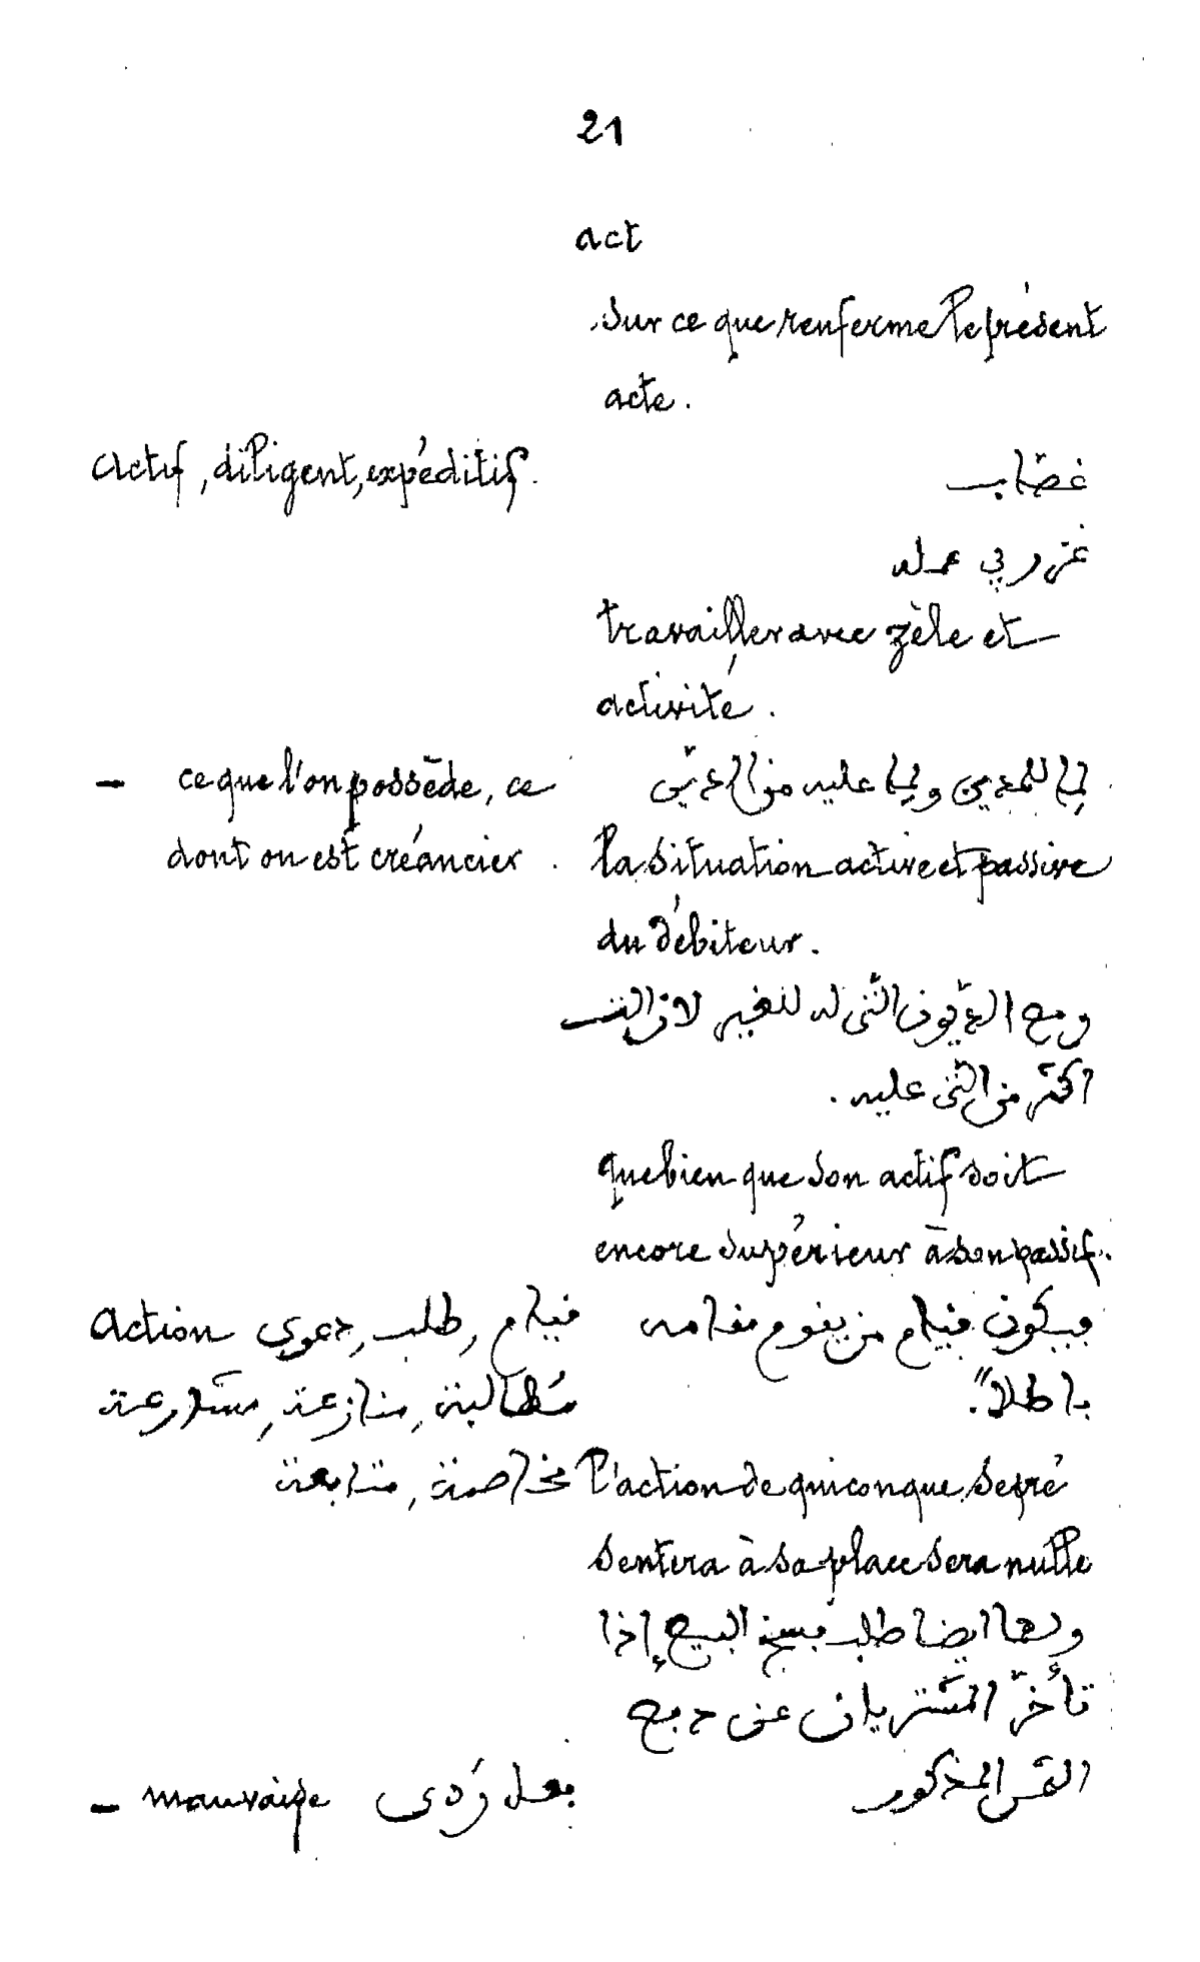 21
act
sur ce que renferme le présent
acte.
actif, diligent, expéditif.
غصّاب
في عمله
travailler avec zèle et
activité.
— ce que l'on possède, ce
dont on est créancier.
لما للمدين ولما عليه من الدين
la situation active et passive
du débiteur.
ومع الديون التى له للغير لا زالت
اكثر من التى عليه.
que bien que son actif soit
encore supérieur à son passif.
action فيام, طلب, دعوى
مُطالبة, منازعة,
مخاصمة, متابعة
فيكون فيام من يفوم مفامه
باطلاً.
l'action de quiconque se pré
sentera à sa place sera nulle
ولهما ايضا طلب فسخ البيع إذا
تأخّر المشتريان عن دفع
الثمن المذكور
— mauvaise فعل رَدى